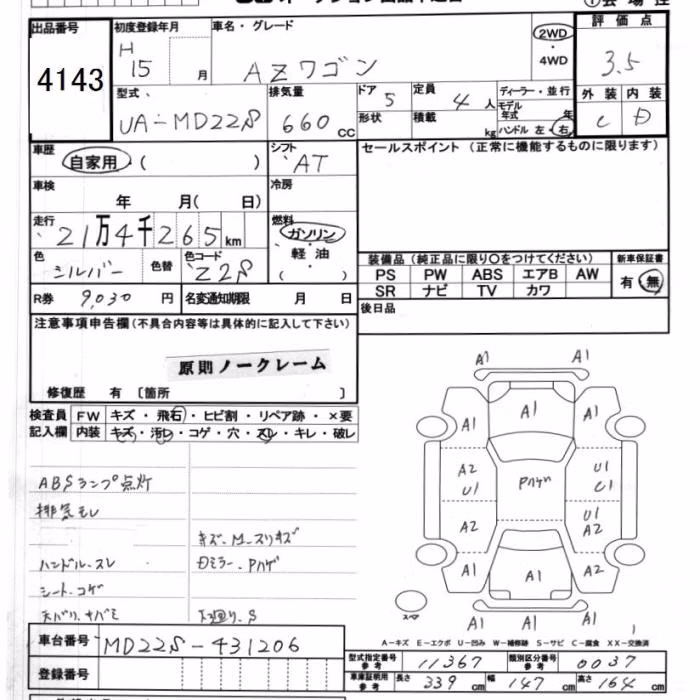 出品番号 初度登録年月 車名・グレード 評価点
4143 H 15 月 AZワゴン 2WD・4WD 3.5
型式 排気量 ドア 定員 ディーラー・並行 外装 内装
UA-MD22S 660 CC 5 4人 モデル年式 年 C D
形状 積載 kg ハンドル 左・右
車歴 自家用・( ) シフト AT セールスポイント(正常に機能するものに限ります)
車検 年 月( 日) 冷房
走行 21万4千265km 燃料 ガソリン・軽油・( )
色 シルバー 色替 色コード Z2S
装備品(純正品に限り○をつけてください) 新車保証書
PS PW ABS エアB AW 有・無
SR ナビ TV カワ
R券 9,030 円 名変通知期限 月 日 後日品
注意事項申告欄(不具合内容等は具体的に記入して下さい)
原則ノークレーム
修復歴 有 〔箇所 〕
検査員 FW キズ・飛石・ヒビ割・リペア跡・×要
記入欄 内装 キズ・汚レ・コゲ・穴・スレ・キレ・破レ
ABSランプ点灯
排気モレ
キズ-M-スリキズ
ハンドル-スレ Dミラー-Pハゲ
シート-コゲ
下廻り-S
A1 A1
A1 A1 A1
A2 U1 Pハゲ U1
A2 U1 A2
A1 A1 A2
スペア
A1 A1
A-キズ E-エクボ U-凹み W-補修跡 S-サビ C-腐食 XX-交換済
車台番号 MD22S-431206
登録番号
型式指定番号参考 11367 類別区分番号参考 0037
車庫証明用参考 長さ 339cm 幅 147cm 高さ 164cm